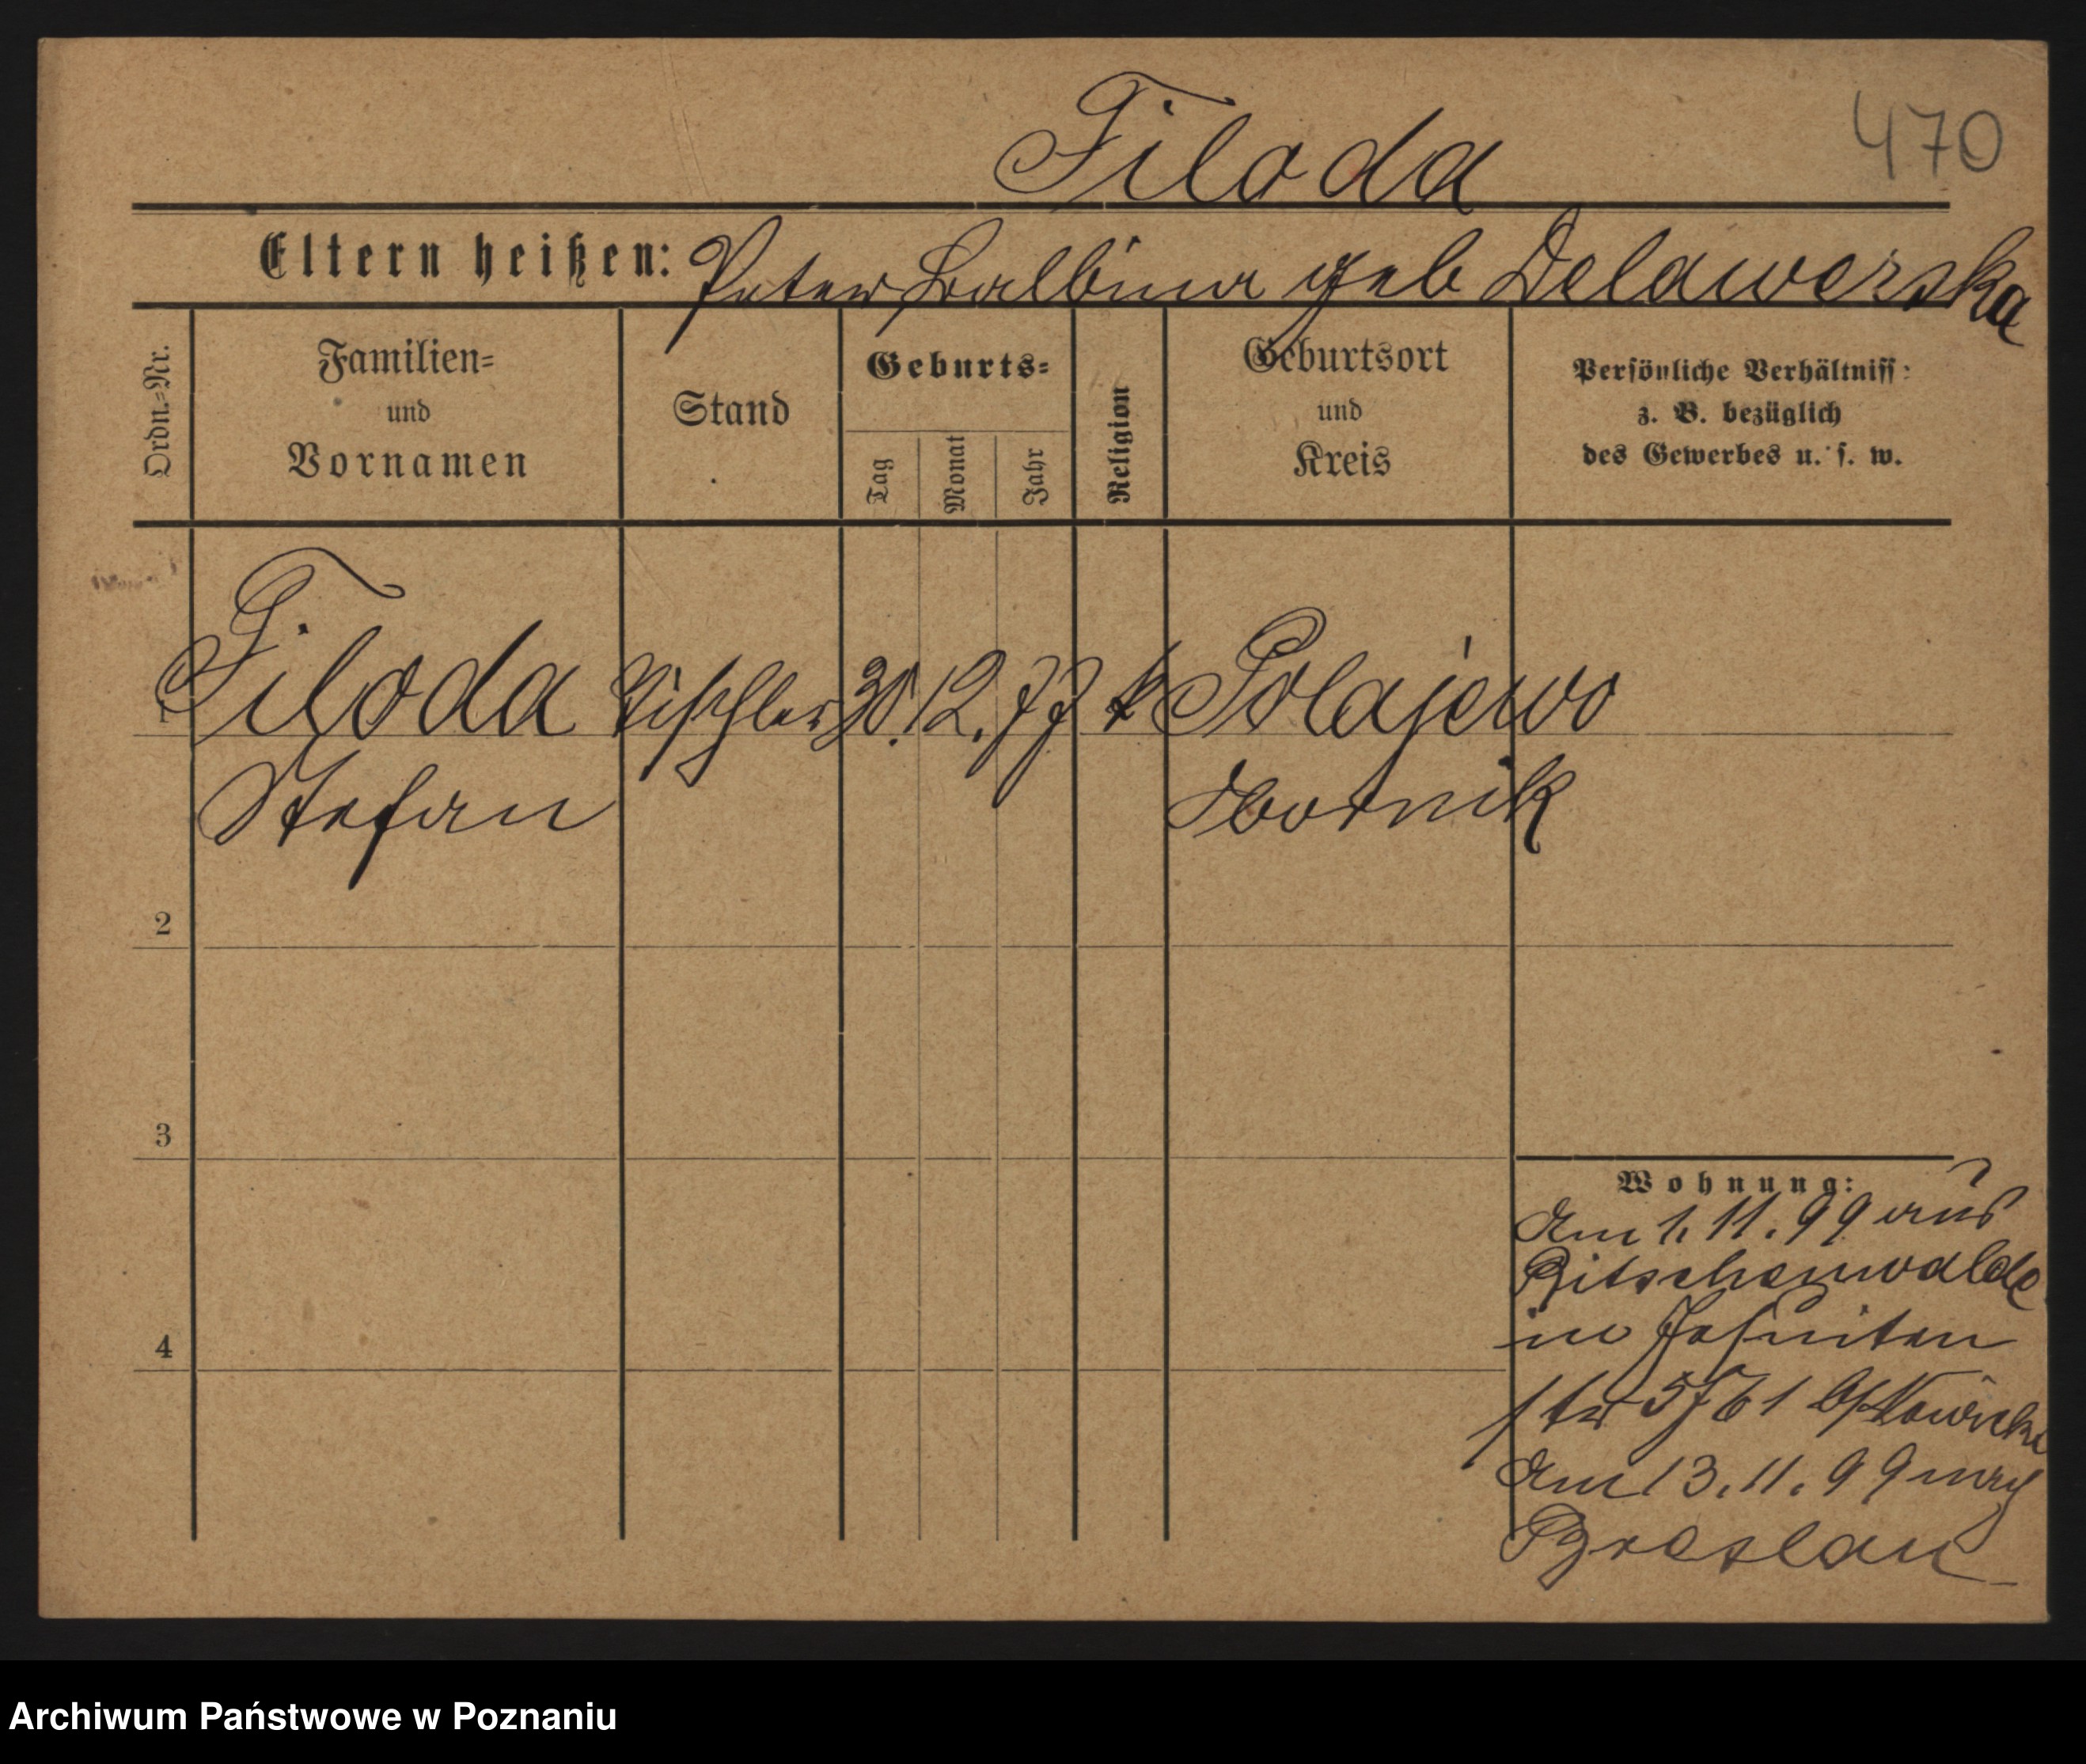 Filoda
470
Eltern heißen: Peter Balbina geb Delawerska
Ordn.=Nr.
Familien=
und
Vornamen
Stand
Geburts=
Tag
Monat
Jahr
Religion
Geburtsort
und
Kreis
Persönliche Verhältniss:
z. B. bezüglich
des Gewerbes u. s. w.
1 Filoda Tischler 30. 12. 77 k Polajewo
Stefan Obornik
2
3
4
Wohnung:
Am 1. 11. 99 aus
Ritschenwalde
in Jesuiten
str
Am 13. 11. 99 nach
Breslau
Archiwum Państwowe w Poznaniu